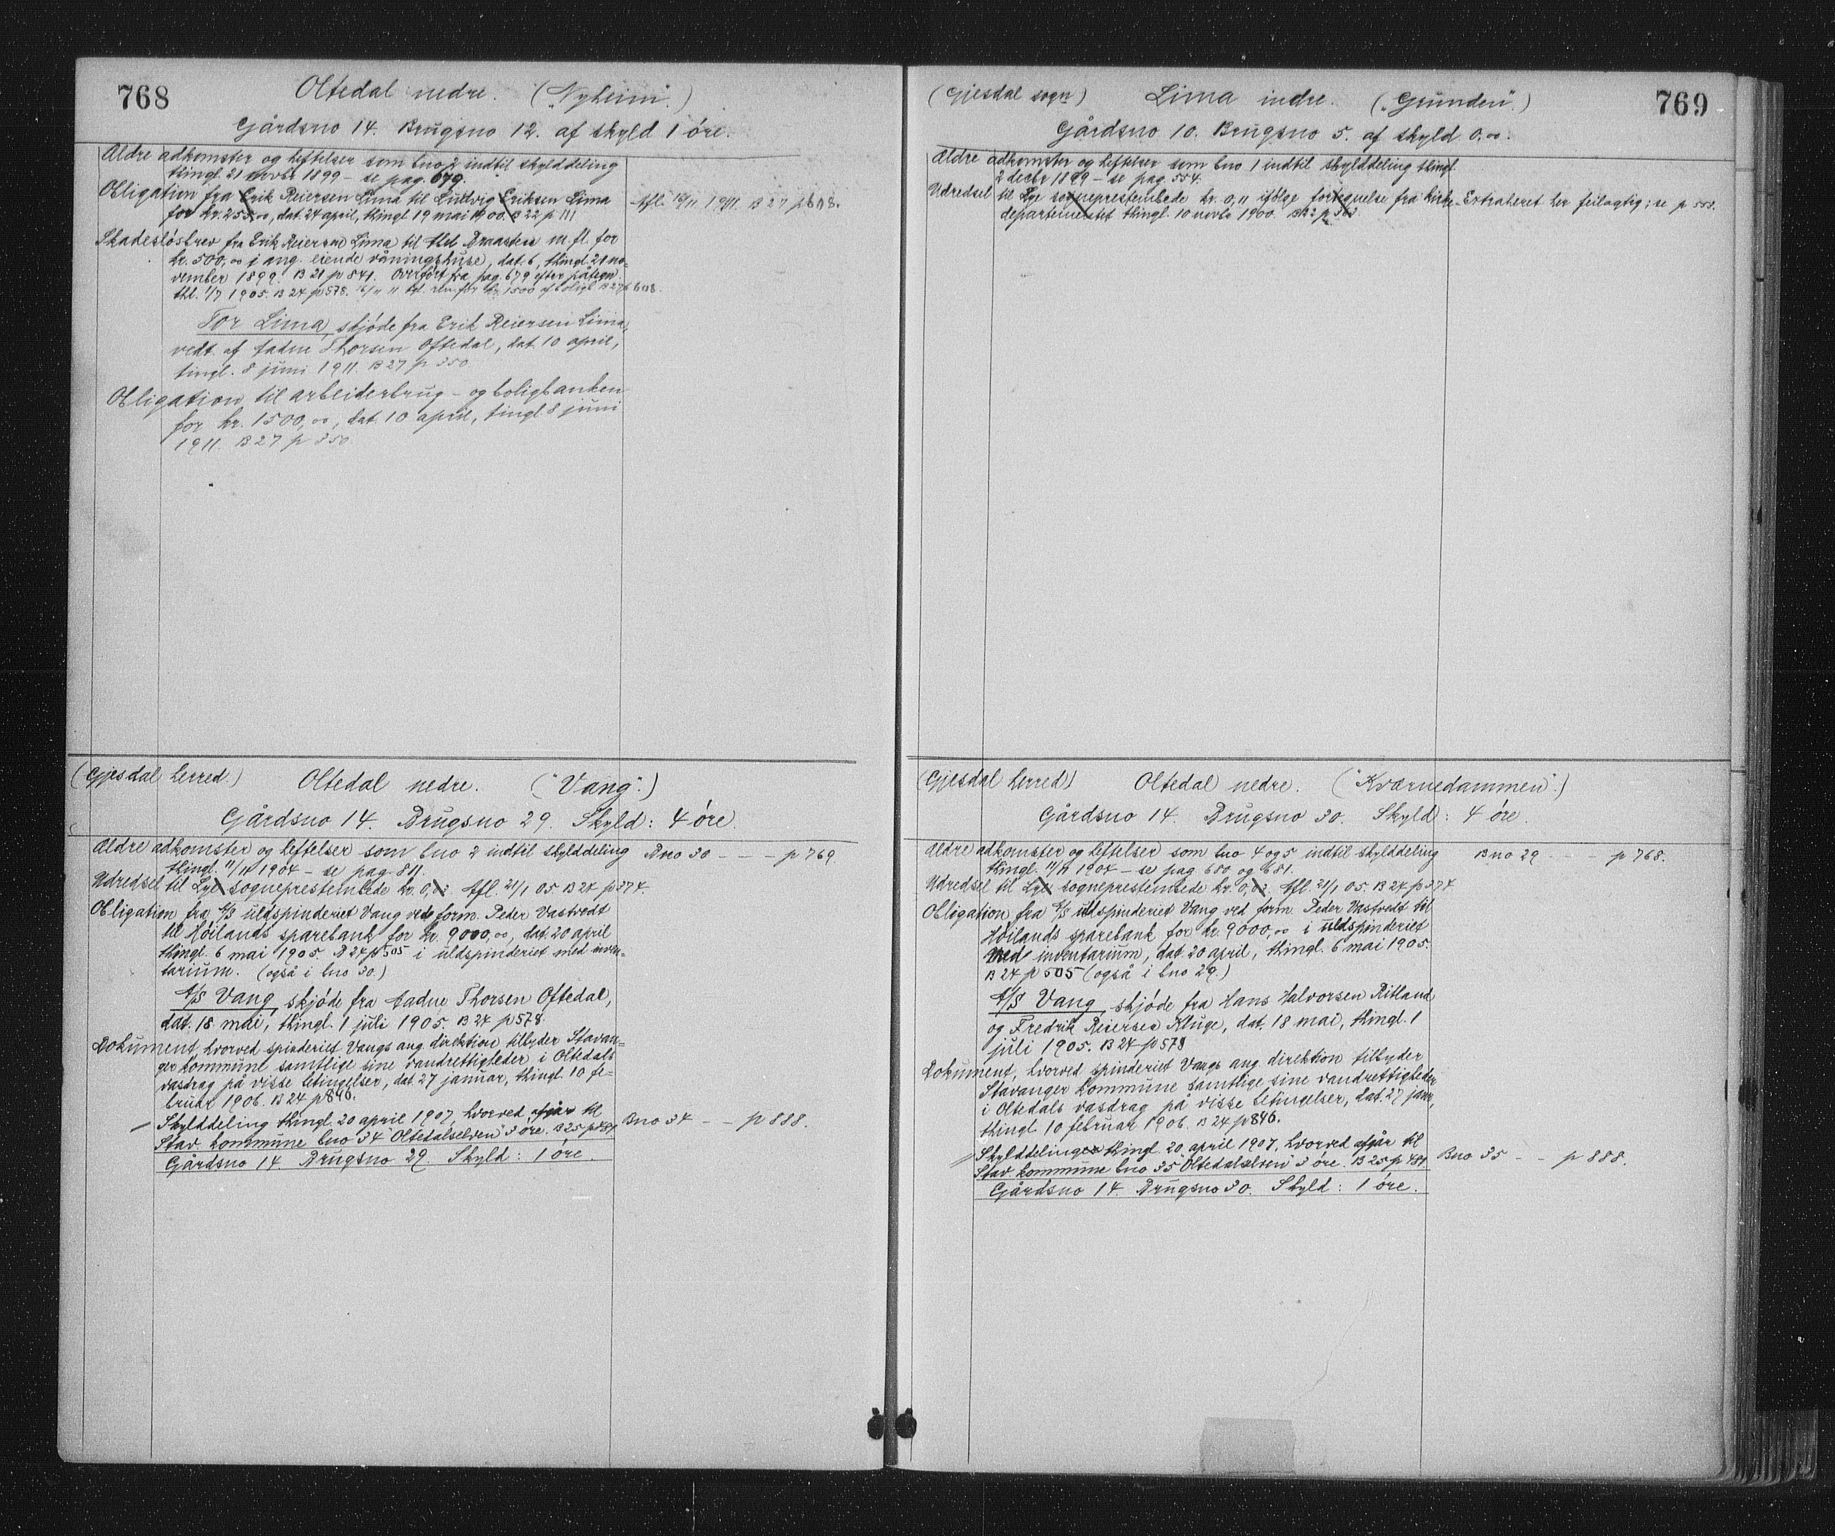 768
Oltedal nedre. ("Nyheim".)
Gårdsno 14. Brugsno 12. af skyld 1 øre.
Ældre adkomster og heftelser som bno 2 indtil skylddeling
thingl. 21 novbr 1899 – se pag. 679.
Obligation fra Erik Reiersen Lima til Ludvig Eriksen Lima
for kr. 255,00, dat. 24 april, thingl 19 mai 1900. B 22 p 111
Afl. 1911. B 27 p 608.
Skadesløsbrev fra Erik Reiersen Lima til m. fl. for
kr. 500,00 i ang. eiende våningshuse, dat. 6, thingl. 21 no-
vember 1899. B 21 p 841. Overført fra pag. 679 efter påtegn.
thl. 1/7 1905. B 24 p 578. for kr 1500 B 27 p 608.
Tor Lima, skjøde fra Erik Reiersen Lima,
vedt. af Thorsen Oftedal, dat. 10 april,
tingl. 8 juni 1911. B 27 p 350
Obligation til arbeiderbrug- og boligbanken
for kr. 1500,00, dat. 10 april, tingl 8 juni
1911. B 27 p 350
(Gjesdal herred.) Oltedal nedre. ("Vang".)
Gårdsno 14. Brugsno 29. Skyld: 4 øre.
Ældre adkomster og heftelser som bno 2 indtil skylddeling
Bno 30 – – – p 769
thingl. 11/11 1904 – se pag. 811.
Udredsel til Lye sogneprestembede kr. 0,02 Afl. 21/1 05 B 24 p 374
Obligation fra A/S uldspinderiet Vang ved form. Peder Vastvedt
til Høilands sparebank for kr. 9000,00, dat. 20 april
thingl. 6 mai 1905 B 24 p 505 i uldspinderiet med inven-
tarium. (også i bno 30.)
A/S Vang, skjøde fra Thorsen Oftedal,
dat. 18 mai, thingl. 1 juli 1905. B 24 p 578
Dokument, hvorved spinderiet Vangs ang. direktion tilbyder Stavan-
ger kommune samtlige sine vandrettigheder i Oltedals
vasdrag på visse betingelser, dat. 27 januar, thingl. 10 fe-
bruar 1906. B 24 p 846.
Skylddeling thingl. 20 april 1907, hvorved afgår til
Stav kommune bno 34 "Oltedalselven" 3 øre. B 25 p 481
Bno 34 – – p 888.
Gårdsno 14 Brugsno 29 Skyld: 1 øre.
769
(Gjesdal sogn) Lima indre. ("Grunden".)
Gårdsno 10. Brugsno 5. af skyld 0,00.
Ældre adkomster og heftelser som bno 1 indtil skylddeling thingl.
2 decbr 1899 – se pag. 554.
Udredsel til Lye sogneprestembede kr. 0,11 ifølge fortegnelse fra kirke-
Extraheret her feilagtig; se p 555.
departementet thingl 10 novbr 1900. B 22 p 363
(Gjesdal herred) Oltedal nedre. ("Kværnedammen".)
Gårdsno 14. Brugsno 30. Skyld: 4 øre.
Ældre adkomster og heftelser som bno 4 og 5 indtil skylddeling
Bno 29 – – – p 768.
thingl. 11/11 1904 – se pag 680 og 681.
Udredsel til Lye sogneprestembede kr. 0,02. Afl. 21/1 05. B 24 p 374
Obligation fra A/S uldspinderiet Vang ved form. Peder Vastvedt til
Høilands sparebank for kr 9000,00 i uldspinderiet
med inventarium, dat 20 april, thingl. 6 mai 1905.
B 24 p 505 (også i bno 29.)
A/S Vang, skjøde fra Hans Halvorsen Ritland
og Fredrik Reiersen Kluge, dat. 18 mai, thingl. 1
juli 1905. B 24 p 578
Dokument, hvorved spinderiet Vangs ang. direktion tilbyder
Stavanger kommune samtlige sine vandrettigheder
i Oltedals vasdrag på visse betingelser, dat. 27 janr,
thingl 10 februar 1906. B 24 p 846.
Skylddeling thingl. 20 april 1907, hvorved afgår til
Stav kommune bno 35 "Oltedalselven" 3 øre. B 25 p 481
Bno 35 – – p 888.
Gårdsno 14. Brugsno 30. Skyld: 1 øre.